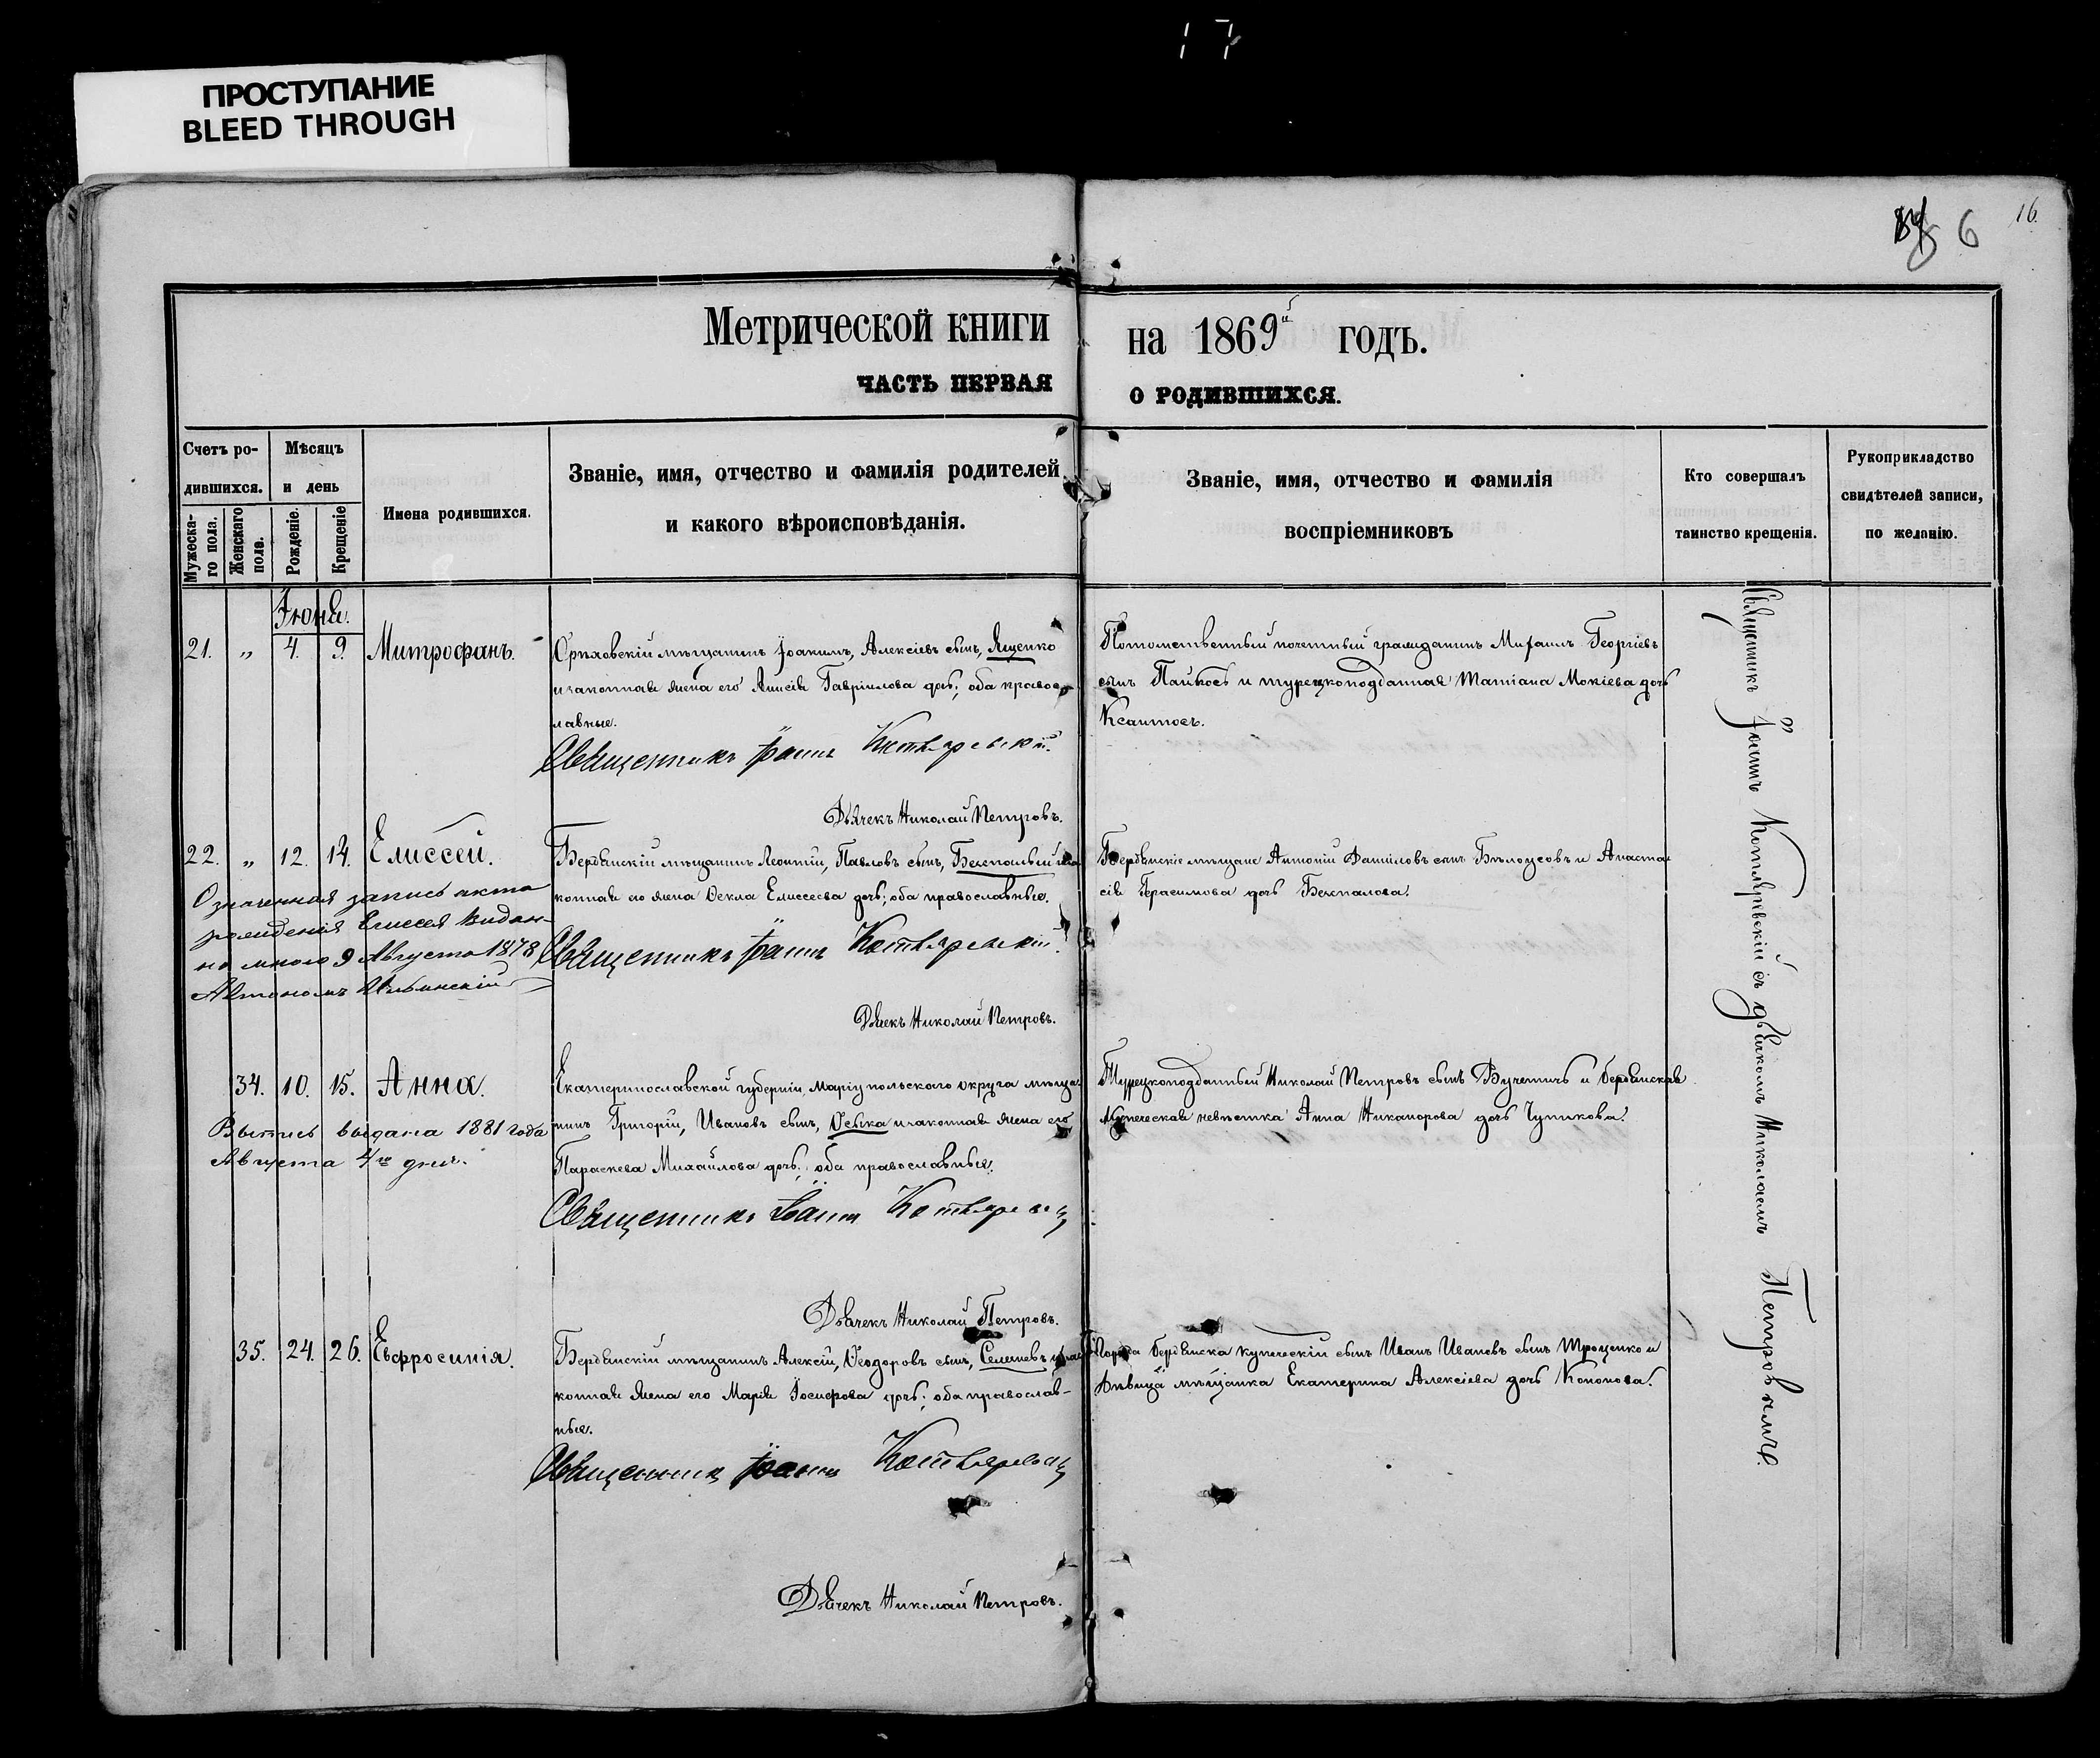 17
ПРОСТУПАНИЕ
BLEED THROUGH
6
16.
Метрической книги на 1869й годъ.
ЧАСТЬ ПЕРВАЯ О РОДИВШИХСЯ.
Счетъ ро-
дившихся.
Мужеска-
го пола.
Женскаго
пола.
Мѣсяцъ
и день
Рожденіе.
Крещеніе
Имена родившихся.
Званіе, имя, отчество и фамилія родителей
и какого вѣроисповѣданія.
Званіе, имя, отчество и фамилія
воспріемниковъ
Кто совершалъ
таинство крещенія.
Рукоприкладство
свидѣтелей записи,
по желанію.
Іюня.
21. „ 4. 9. Митрофанъ.
Орѣховскій мѣщанинъ Іоакимъ, Алексіевъ сынъ, Яценко
и законная жена его Анисія Гавріилова дочь; оба правос-
лавные.
Священникъ Іоаннъ Котляревскій.
Дьячекъ Николай Петровъ.
Потомственный почетный гражданинъ Михаилъ Георгіевъ
сынъ и турецкоподданная Татіана Мокіева дочь
Ксантосъ.
22. „ 12. 14. Елиссей.
Означенная запись акта
рожденія Елисея видан-
на мною 9 Августа 1878
Бердянскій мѣщанинъ Леонтій, Павловъ сынъ, Бехпалый и за-
конная его жена Ѳекла Елисеева дочь; оба православные.
Священникъ Іоаннъ Котляревскій.
Дьячекъ Николай Петровъ.
Бердянскіе мѣщане Антоній Даниловъ сынъ Бѣлоусовъ и Анаста-
сія Герасимова дочь Бехпалова.
34. 10. 15. Анна.
Выпись выдана 1881 года
Августа 4го дня.
Екатеринославской губерніи, Маріупольскаго округа мѣща-
нинъ Григорій, Ивановъ сынъ, и законная жена его
Параскева Михайлова дочь; оба православные.
Священникъ Іоаннъ
Дьячекъ Николай Петровъ.
Турецкоподданный Николай Петровъ сынъ Вучетичъ и бердянская
купеческая невѣстка Анна Никанорова дочь Чутикова.
35. 24. 26. Евфросинія.
Бердянскій мѣщанинъ Алексій, Ѳеодоровъ сынъ, и за-
конная жена его Марія Іосифова дочь; оба православ-
ные.
Священникъ Іоаннъ
Дьячекъ Николай Петровъ.
Города Бердянска купеческій сынъ Иванъ Ивановъ сынъ Троценко и
дѣвица мѣщанка Екатерина Алексіева дочь Кононова.
Священникъ Іоаннъ Котляревскій съ дьячкомъ Николаемъ Петровымъ.